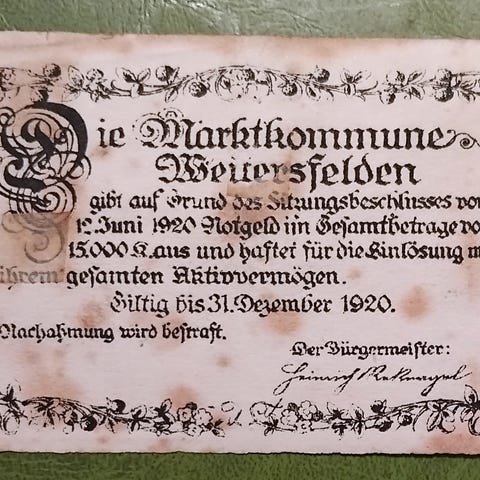 Die Marktkommune
Weitersfelden
gibt auf Grund des Sitzungsbeschlusses vo
12. Juni 1920 Notgeld im Gesamtbetrage vo
15.000 K. aus und haftet für die Einlösung m
ihrem gesamten Aktivvermögen.
Giltig bis 31. Dezember 1920.
Nachahmung wird bestraft.
Der Bürgermeister:
Heinrich